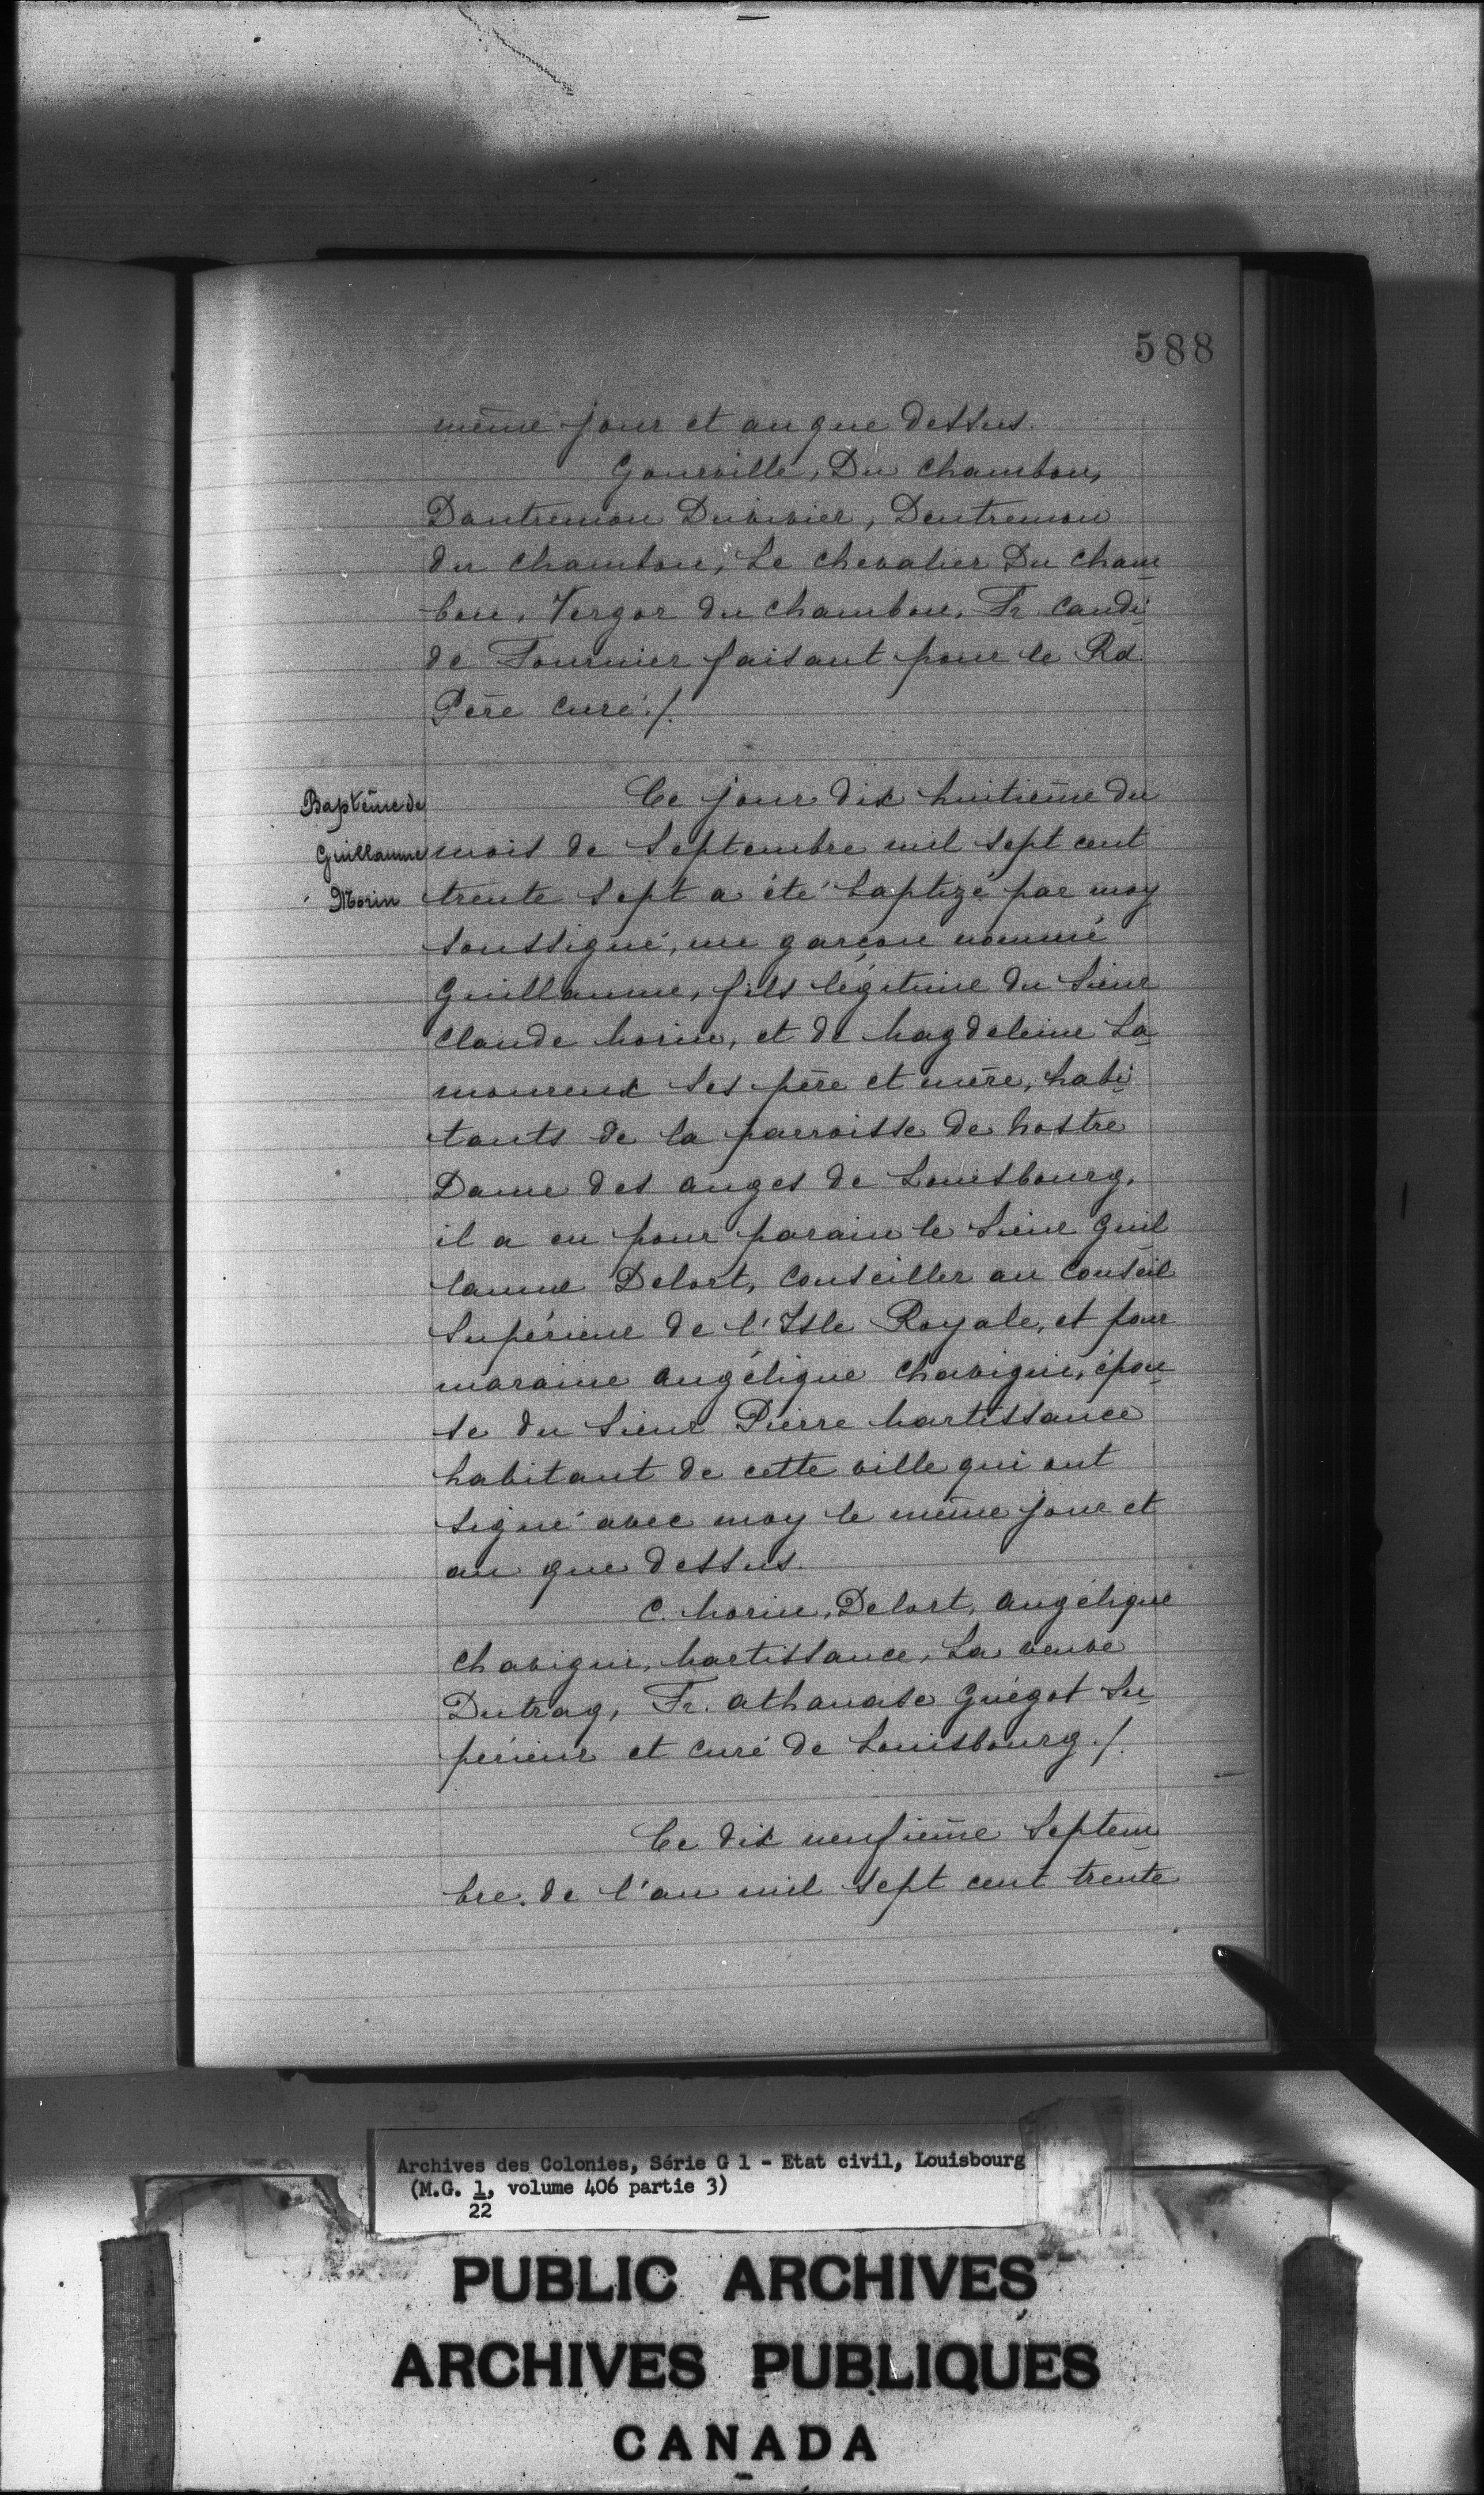 588
même jour et an que dessus.
Gourville, Du Chambon,
Dantremon Duvivier, Dentremon
du Chambon, Le chevalier Du Cham
bon, Vergor du Chambon, Fr. Candi
de Fournier faisant pour le Rd.
Père Curé./.
Baptême de
Guillaume
Morin
Ce jour dix huitième du
mois de Septembre mil sept cent
trente sept a été baptizé par moy
soussigné, un garçon nommé
Guillaume, fils légitime du Sieur
Claude Morin, et de Magdeleine La
moureux ses père et mère, habi
tants de la parroisse de Nostre
Dame des anges de Louisbourg,
il a eu pour parain le Sieur Guil
laume Delort, Conseiller au Conseil
Supérieur de l'Isle Royale, et pour
maraine Angélique Chavigni, épou
se du Sieur Pierre Martissance
habitant de cette ville qui ont
signé avec moy le même jour et
an que dessus.
C. Morin, Delort, Angélique
Chavigni, Martissance, La veuve
Dutrag, Fr. Athanase Guégot Su
périeur et Curé de Louisbourg./.
Ce dix neufième Septem
bre. de l'an mil sept cent trente
Archives des Colonies, Série G 1 - Etat civil, Louisbourg
(M.G. 1, volume 406 partie 3)
22
PUBLIC ARCHIVES
ARCHIVES PUBLIQUES
CANADA